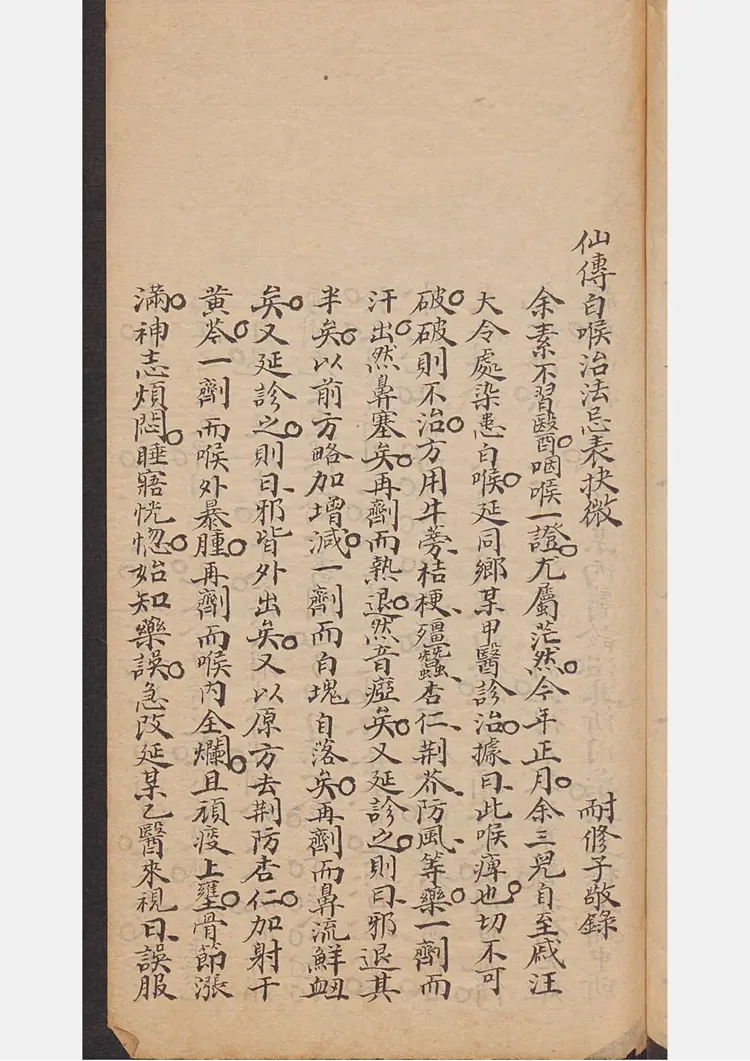 仙傳白喉治法忌表抉微 耐修子敬錄
余素不習醫。咽喉一證。尤屬茫然。今年正月。余三兒自至戚汪
大令處染患白喉。延同鄉某甲醫診治。據曰、此喉痺也。切不可
破。破則不治。方用牛蒡、桔梗、殭蠶、杏仁、荆芥、防風、等藥。一劑而
汗出。然鼻塞矣。再劑而熱退。然音瘂矣。又延診之。則曰、邪退其
半矣。以前方略加增減。一劑而白塊自落矣。再劑而鼻流鮮衄
矣。又延診之。則曰、邪皆外出矣。又以原方去荆防杏仁。加射干
黃芩。一劑而喉外暴腫。再劑而喉內全爛。且頑痰上壅。骨節漲
滿。神志煩悶。睡寤恍惚。始知藥誤。急改延某乙醫來視曰、誤服